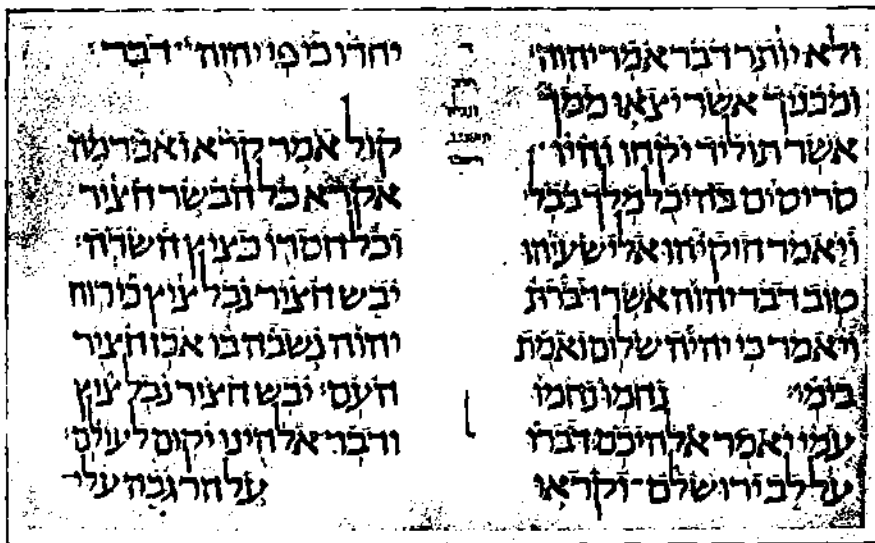 ולא יותר דבר אמר יהוה׃
ומבניך אשר יצאו ממך
אשר תוליד יקחו והיו
סריסים בהיכל מלך בבל׃
ויאמר חזקיהו אל ישעיהו
טוב דבר יהוה אשר דברת
ויאמר כי יהיה שלום ואמת
בימי׃ נחמו נחמו
עמי יאמר אלהיכם׃ דברו
על לב ירושלם וקראו
יחדו כי פי יהוה דבר׃
קול אמר קרא ואמר מה
אקרא כל הבשר חציר
וכל חסדו כציץ השדה׃
יבש חציר נבל ציץ כי רוח
יהוה נשבה בו אכן חציר
העם׃ יבש חציר נבל ציץ
ודבר אלהינו יקום לעולם׃
על הר גבה עלי